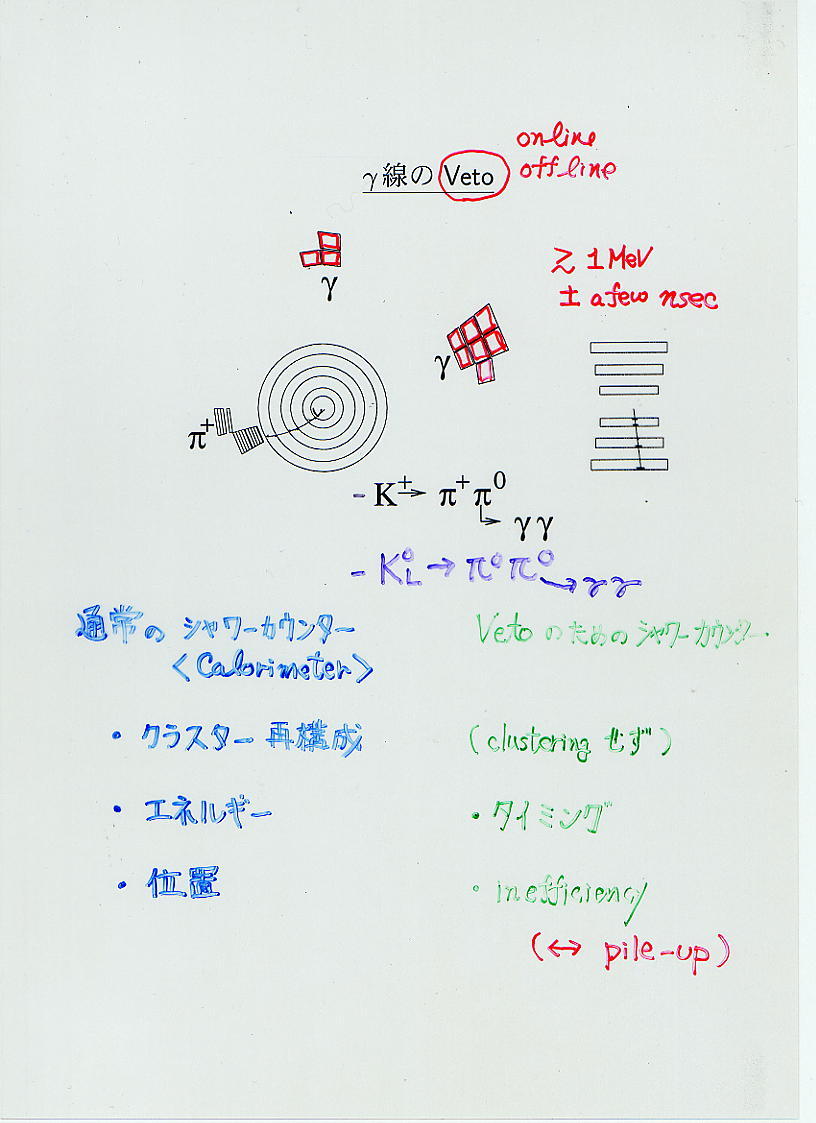 on-line
γ線の Veto off-line
γ
≳ 1 MeV
± a few nsec
γ
π+
- K+ → π+ π0
↳ γγ
- K0L → π0 π0 → γγ
通常の シャワーカウンター
<Calorimeter>
・ クラスター 再構成
・ エネルギー
・ 位置
Veto のための シャワーカウンター.
(clustering せず)
・ タイミング
・ inefficiency
(↔ pile-up)